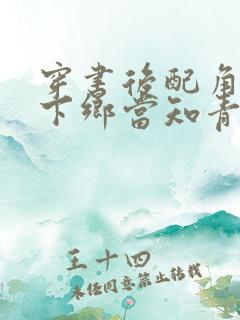 穿书后配角
下乡当知青
王十四
未经同意禁止转载